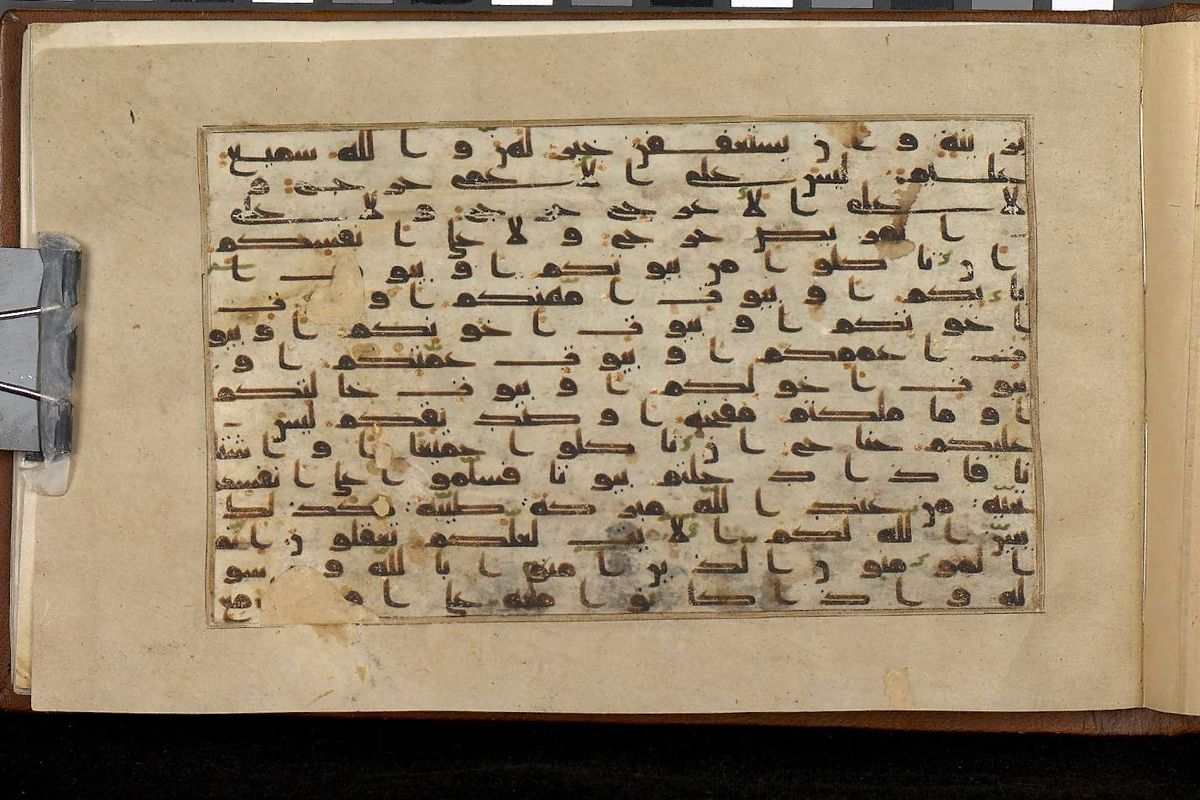 بزينة وأن يستعففن خير لهن والله سميع
عليم ليس على الاعمى حرج و
لا على الاعرج حرج ولا على
المريض حرج ولا على أنفسكم
ان تاكلوا من بيوتكم او بيوت ا
بائكم او بيوت امهتكم او بيوت
اخونكم او بيوت اخوتكم او بيو
ت اعممكم او بيوت عمتكم او
بيوت اخولكم او بيوت خالتكم
او ما ملكتم مفتحه او صديقكم ليس
عليكم جناح ان تاكلوا جميعا او اشتا
تا فاذا دخلتم بيوتا فسلموا على انفسكم
تحية من عند الله مبركة طيبة كذلك
يبين الله لكم الايت لعلكم تعقلون انما
المومنون الذين امنوا بالله ورسو
له واذا كانوا معه على امر